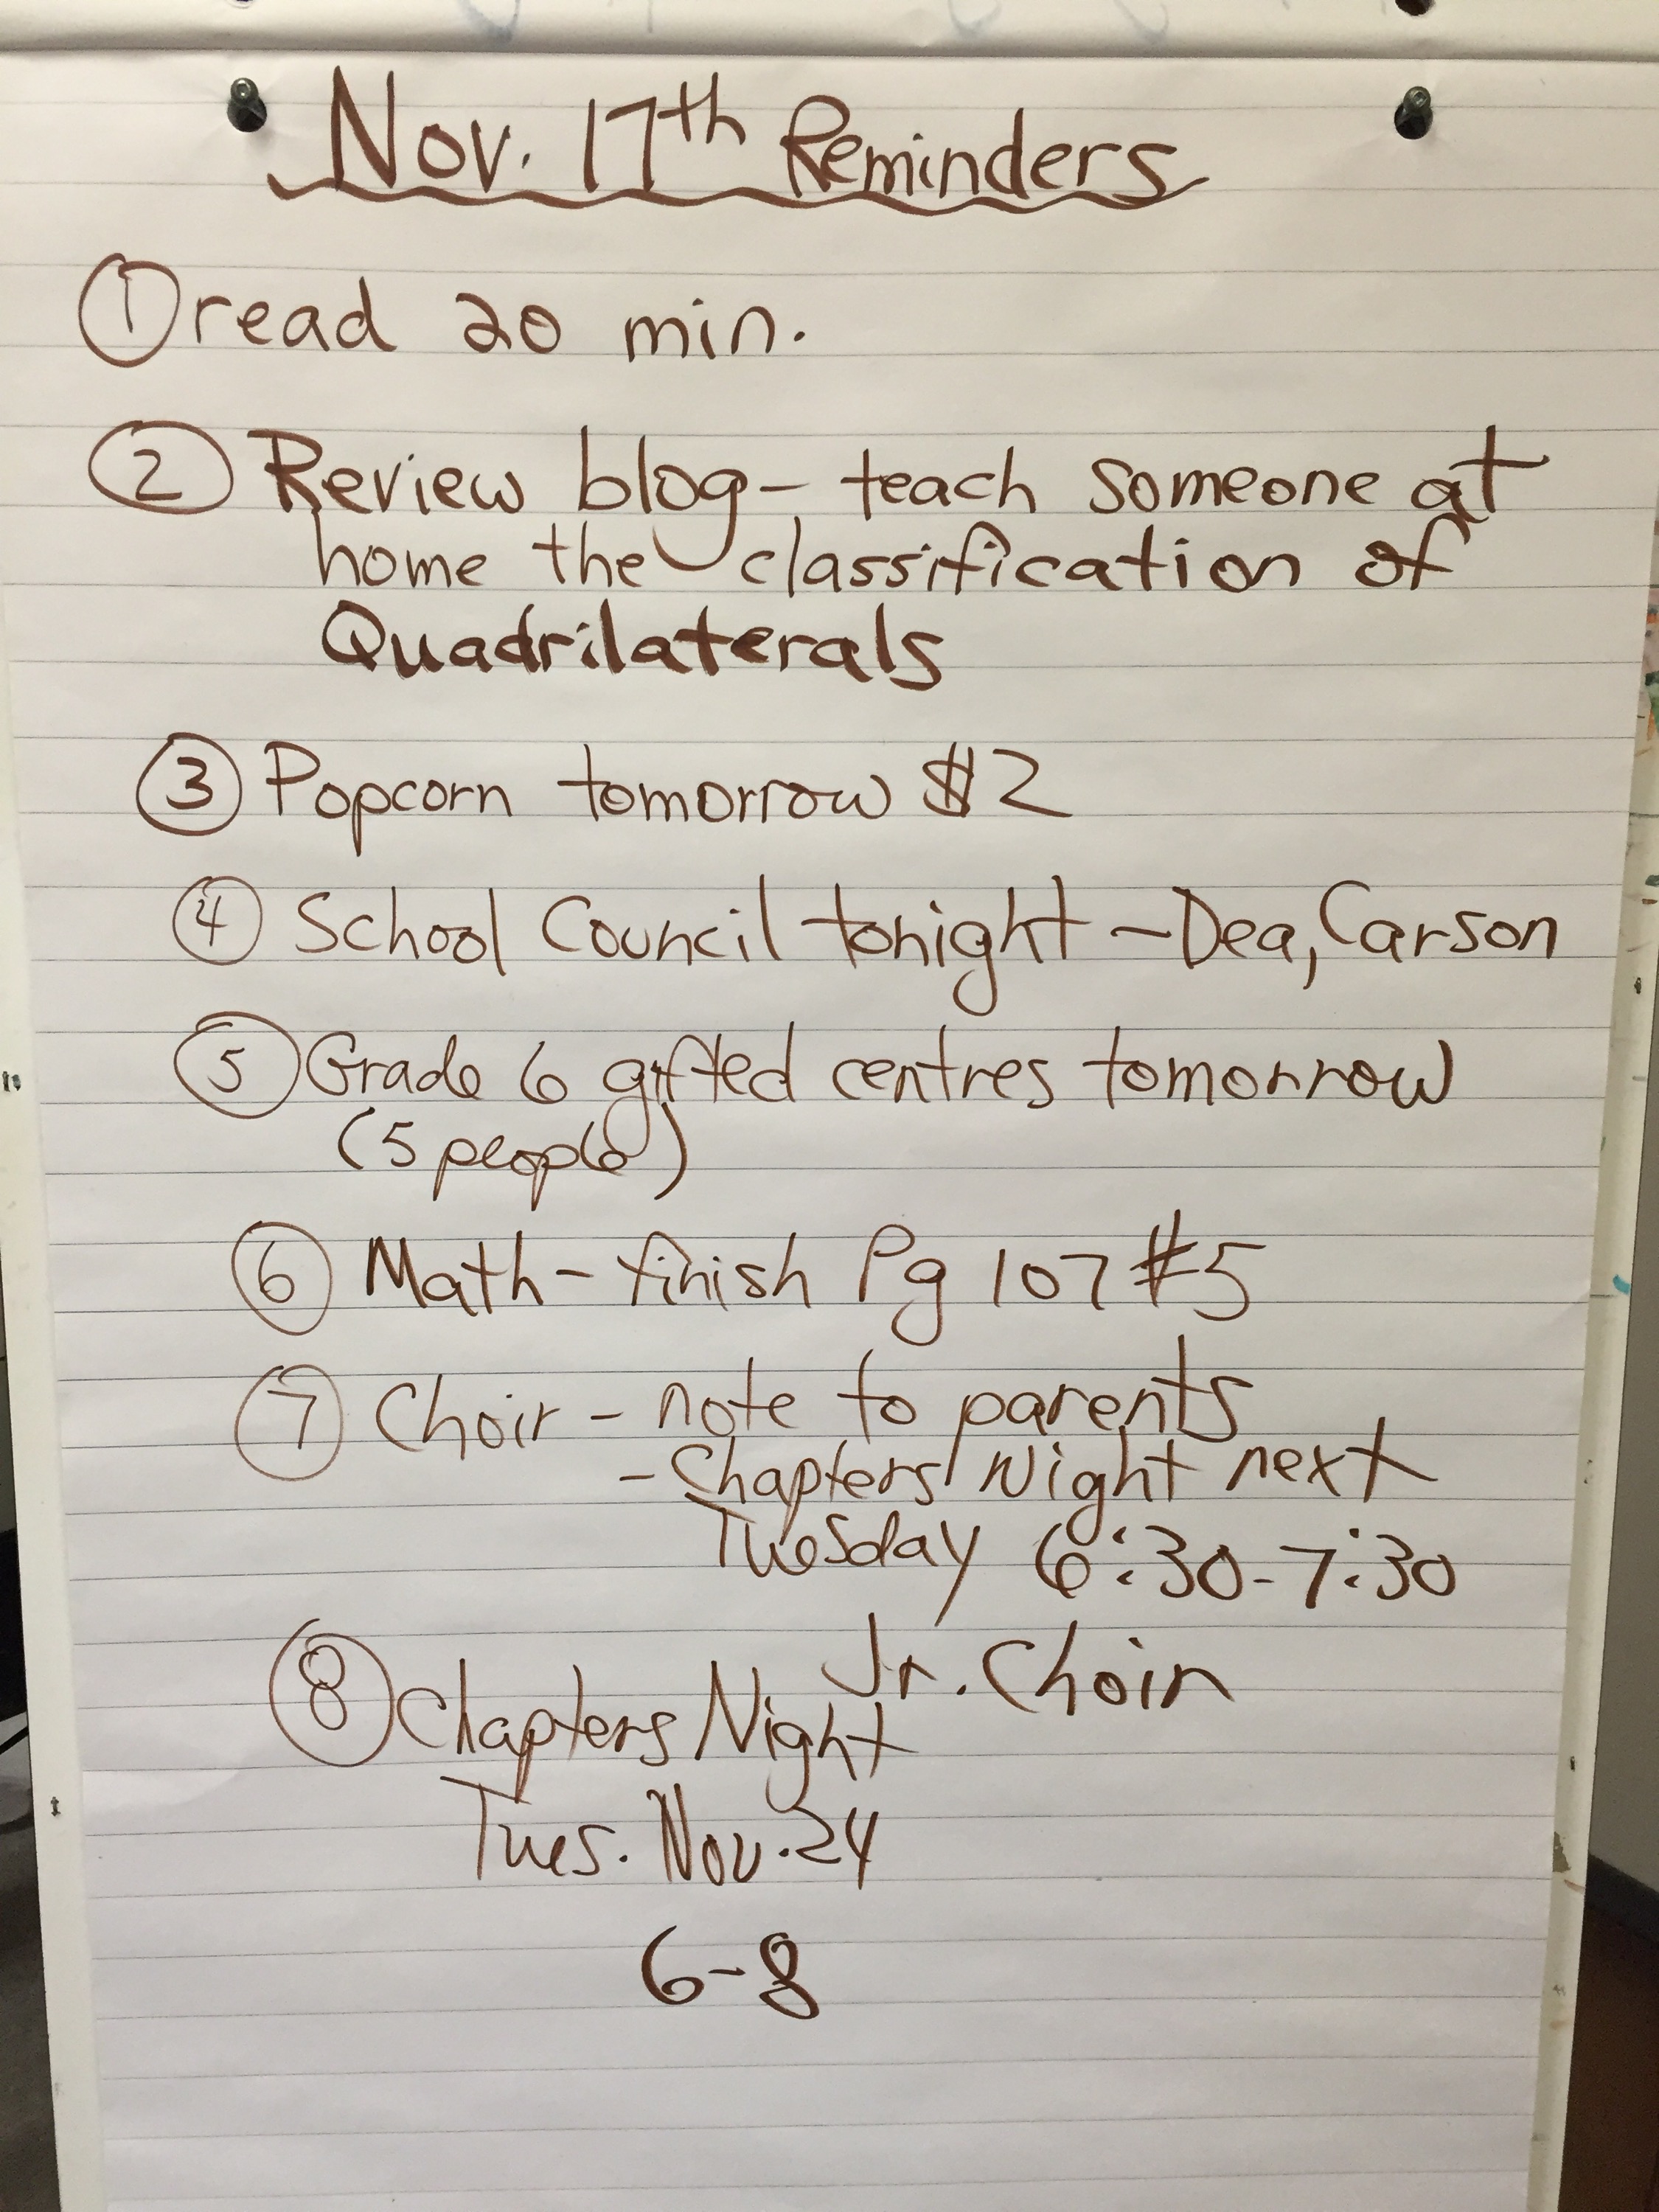 Nov. 17th Reminders
① read 20 min.
② Review blog - teach someone at
home the classification of
Quadrilaterals
③ Popcorn tomorrow $2
④ School Council tonight - Dea, Carson
⑤ Grade 6 gifted centres tomorrow
(5 people)
⑥ Math - finish Pg 107 #5
⑦ Choir - note to parents
- Chapters Night next
Tuesday 6:30-7:30
Jr. Choir
⑧ Chapters Night
Tues. Nov. 24
6-8